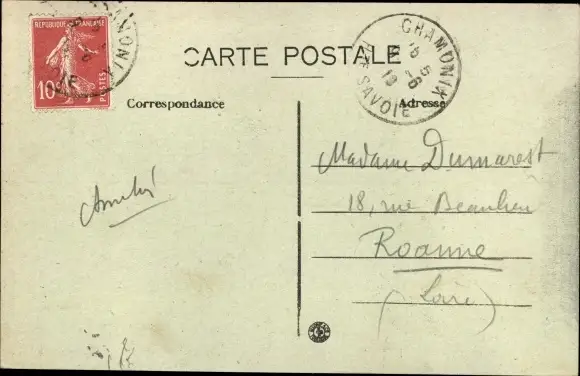 REPUBLIQUE FRANÇAISE
10c
POSTES
CARTE POSTALE
CHAMONIX
Hte SAVOIE
Correspondance
Adresse
Madame Dumarest
18, rue Beaulieu
Roanne
(Loire)